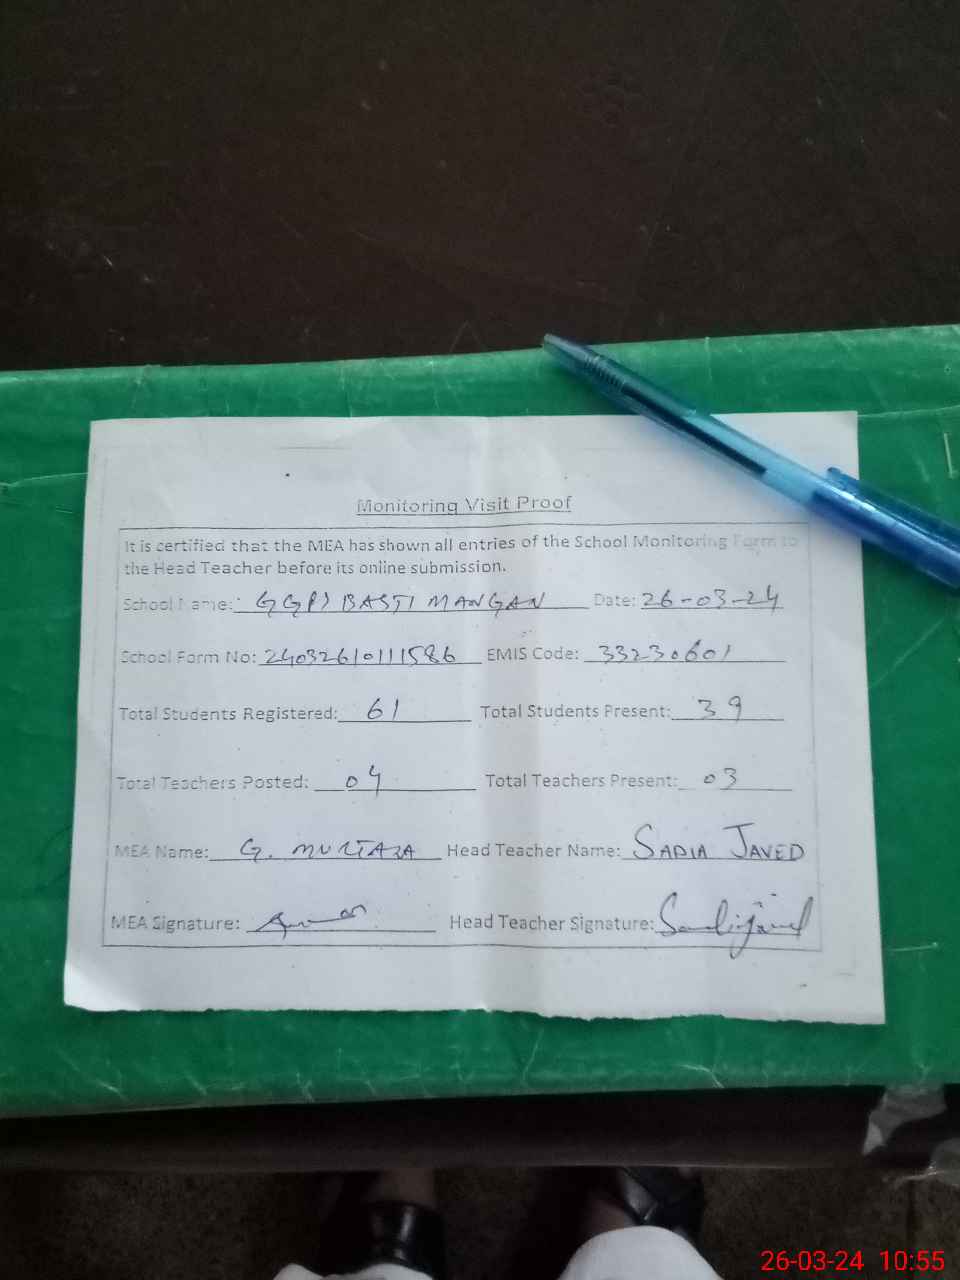 Monitoring Visit Proof
It is certified that the MEA has shown all entries of the School Monitoring Form to
the Head Teacher before its online submission.
School Name: GGPS BASTI MANGAN Date: 26-03-24
School Form No: 24032610111586 EMIS Code: 33230601
Total Students Registered: 61 Total Students Present: 39
Total Teachers Posted: 04 Total Teachers Present: 03
MEA Name: G. MURTAZA Head Teacher Name: SADIA JAVED
MEA Signature: Head Teacher Signature: Sadia Javed
26-03-24 10:55